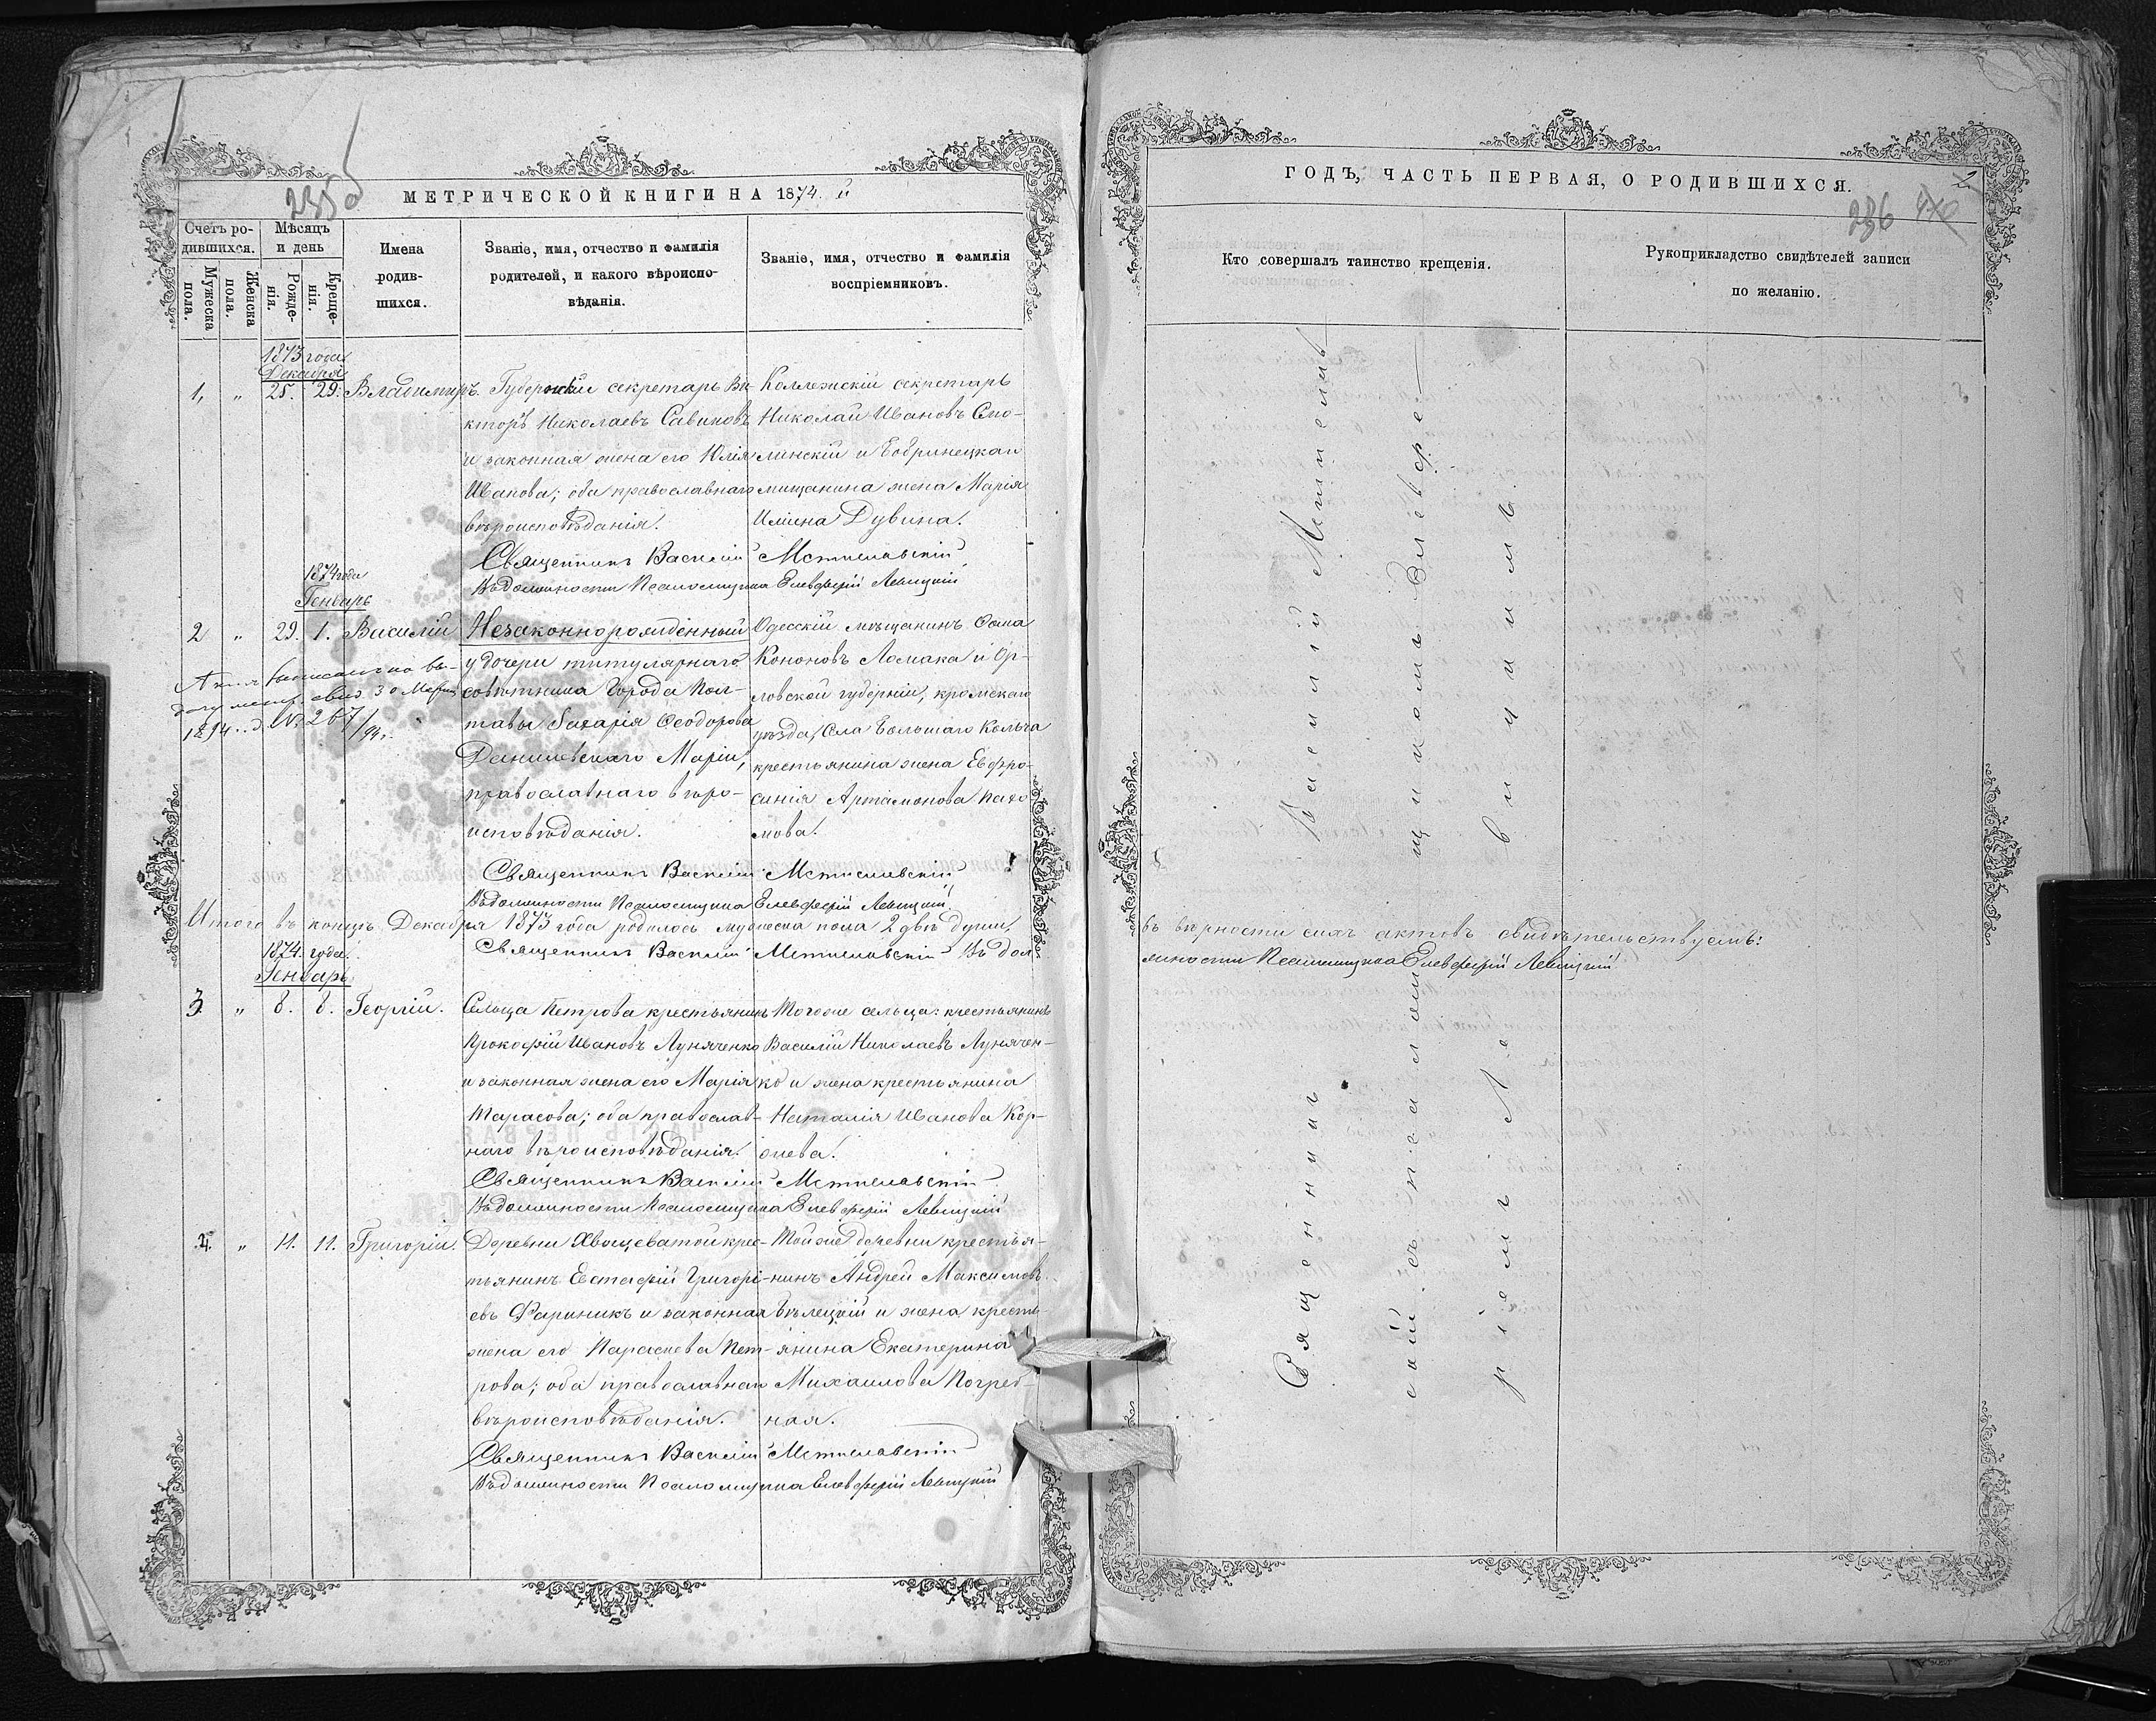 235об
МЕТРИЧЕСКОЙ КНИГИ НА 1874.й
Счетъ ро-
дившихся.
Мѣсяцъ
и день
Мужеска
пола.
Женска
пола.
Рожде-
нія.
Креще-
нія.
Имена
родив-
шихся.
Званіе, имя, отчество и фамилія
родителей, и какого вѣроиспо-
вѣданія.
Званіе, имя, отчество и фамилія
воспріемниковъ.
1873 года
Декабря
1, „ 25. 29. Владимиръ.
Губернскій секретарь Ви-
кторъ Николаевъ Савиновъ
и законная жена его Юлія
Иванова; оба православнаго
вѣроисповѣданія.
Коллежскій секретарь
Николай Ивановъ Смо-
линскій и Бобринецкаго
мищанина жена Марія
Дувина.
Священникъ Василій Мстиславскій
Въ должности Псаломщика Елевферій Левицкій
1874 года
Генварь
2 „ 29. 1. Василій
Незаконнорожденный
у дочери титулярнаго
совѣтника города Пол-
тавы Захарія Ѳеодорова
Данилевскаго Маріи,
православнаго вѣро-
исповѣданія.
Одесскій мѣщанинъ Ѳома
Кононовъ Ломака и Ор-
ловской губерніи, кромскаго
уѣзда, села Большаго Кольча
крестьянина жена Евфро-
синія Артамонова Пахо-
мова.
1894 № 267/94.
Священникъ Василій Мстиславскій
Въ должности Псаломщика Елевферій Левицкій.
Итого въ концѣ Декабря 1873 года родилось мужеска пола 2 двѣ души,
Священникъ Василій Мстиславскій Въ дол
1874. года.
Генварь
3. „ 8. 8. Георгій.
Сельца Петрова крестьянинъ
Прокофій Ивановъ Луняченко
и законная жена его Марія
Тарасова; оба православ-
наго вѣроисповѣданія.
Тогоже сельца: крестьянинъ
Василій Николаевъ Луничен-
ко и жена крестьянина
Наталія Иванова Кор-
нева.
Священникъ Василій Мстиславскій
Въ должности Псаломщика Елевферій Левицкій
4. „ 11. 11. Григорій.
Деревни Хвощеватой крес-
тьянинъ Евстафій Григорі-
евъ Фариникъ и законная
жена его Параскева Пет-
рова; оба православнаго
вѣроисповѣданія.
Тойже деревни крестья-
нинъ Андрей Максимовъ
Бѣлецкій и жена кресть-
янина Екатерина
Михаилова Погреб-
ная.
Священникъ Василій Мстиславскій
Въ должности Псаломщика Елевферій Левицкій
ГОДЪ, ЧАСТЬ ПЕРВАЯ, О РОДИВШИХСЯ.
2
236
Кто совершалъ таинство крещенія.
Рукоприкладство свидѣтелей записи
по желанію.
Священникъ Василій Мстислав
скій съ псаломщикомъ Елевфе
ріемъ Левицкимъ.
въ вѣрности сихъ актовъ свидѣтельствуемъ:
жности Псаломщика Елевферій Левицкій